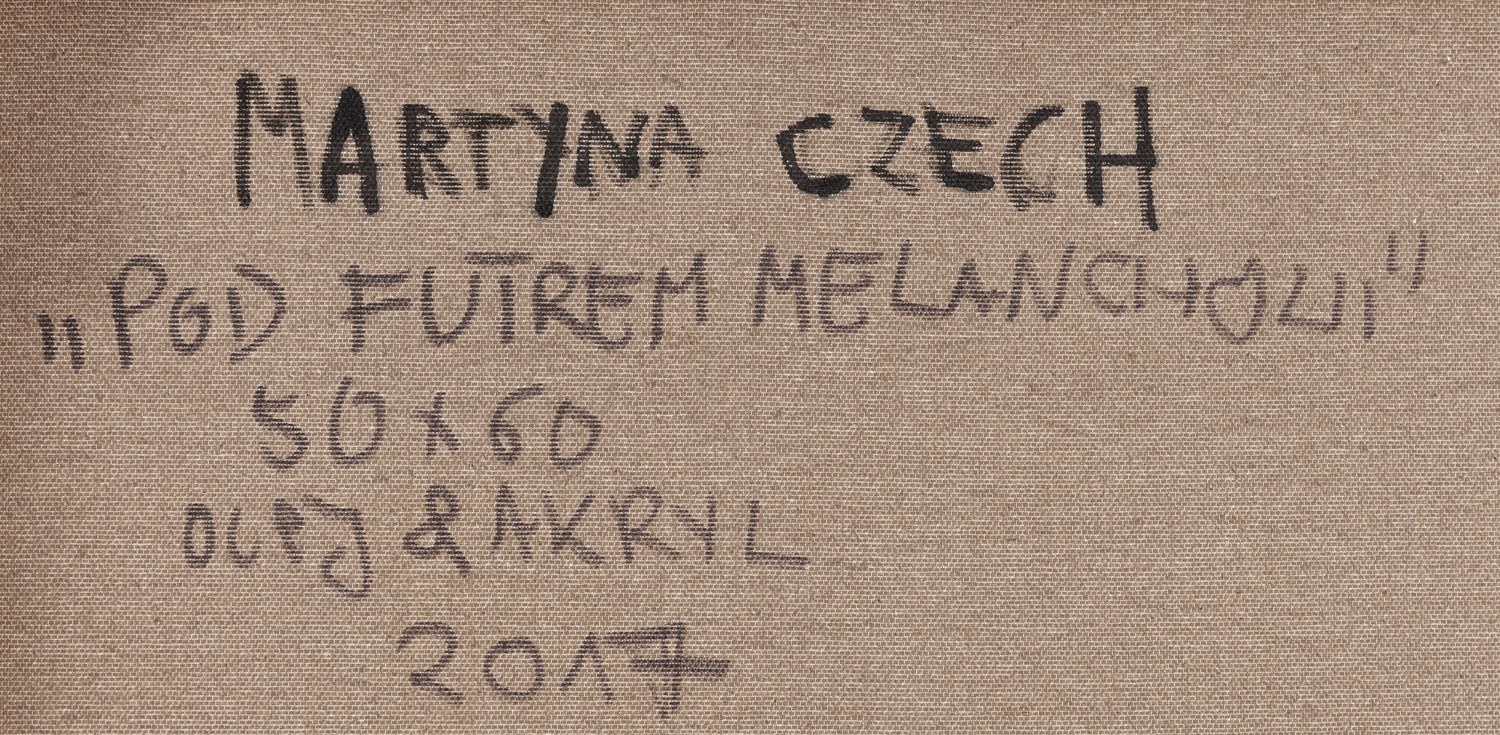 MARTYNA CZECH
„POD FUTREM MELANCHOLII"
50 x 60
OLEJ & AKRYL
2017